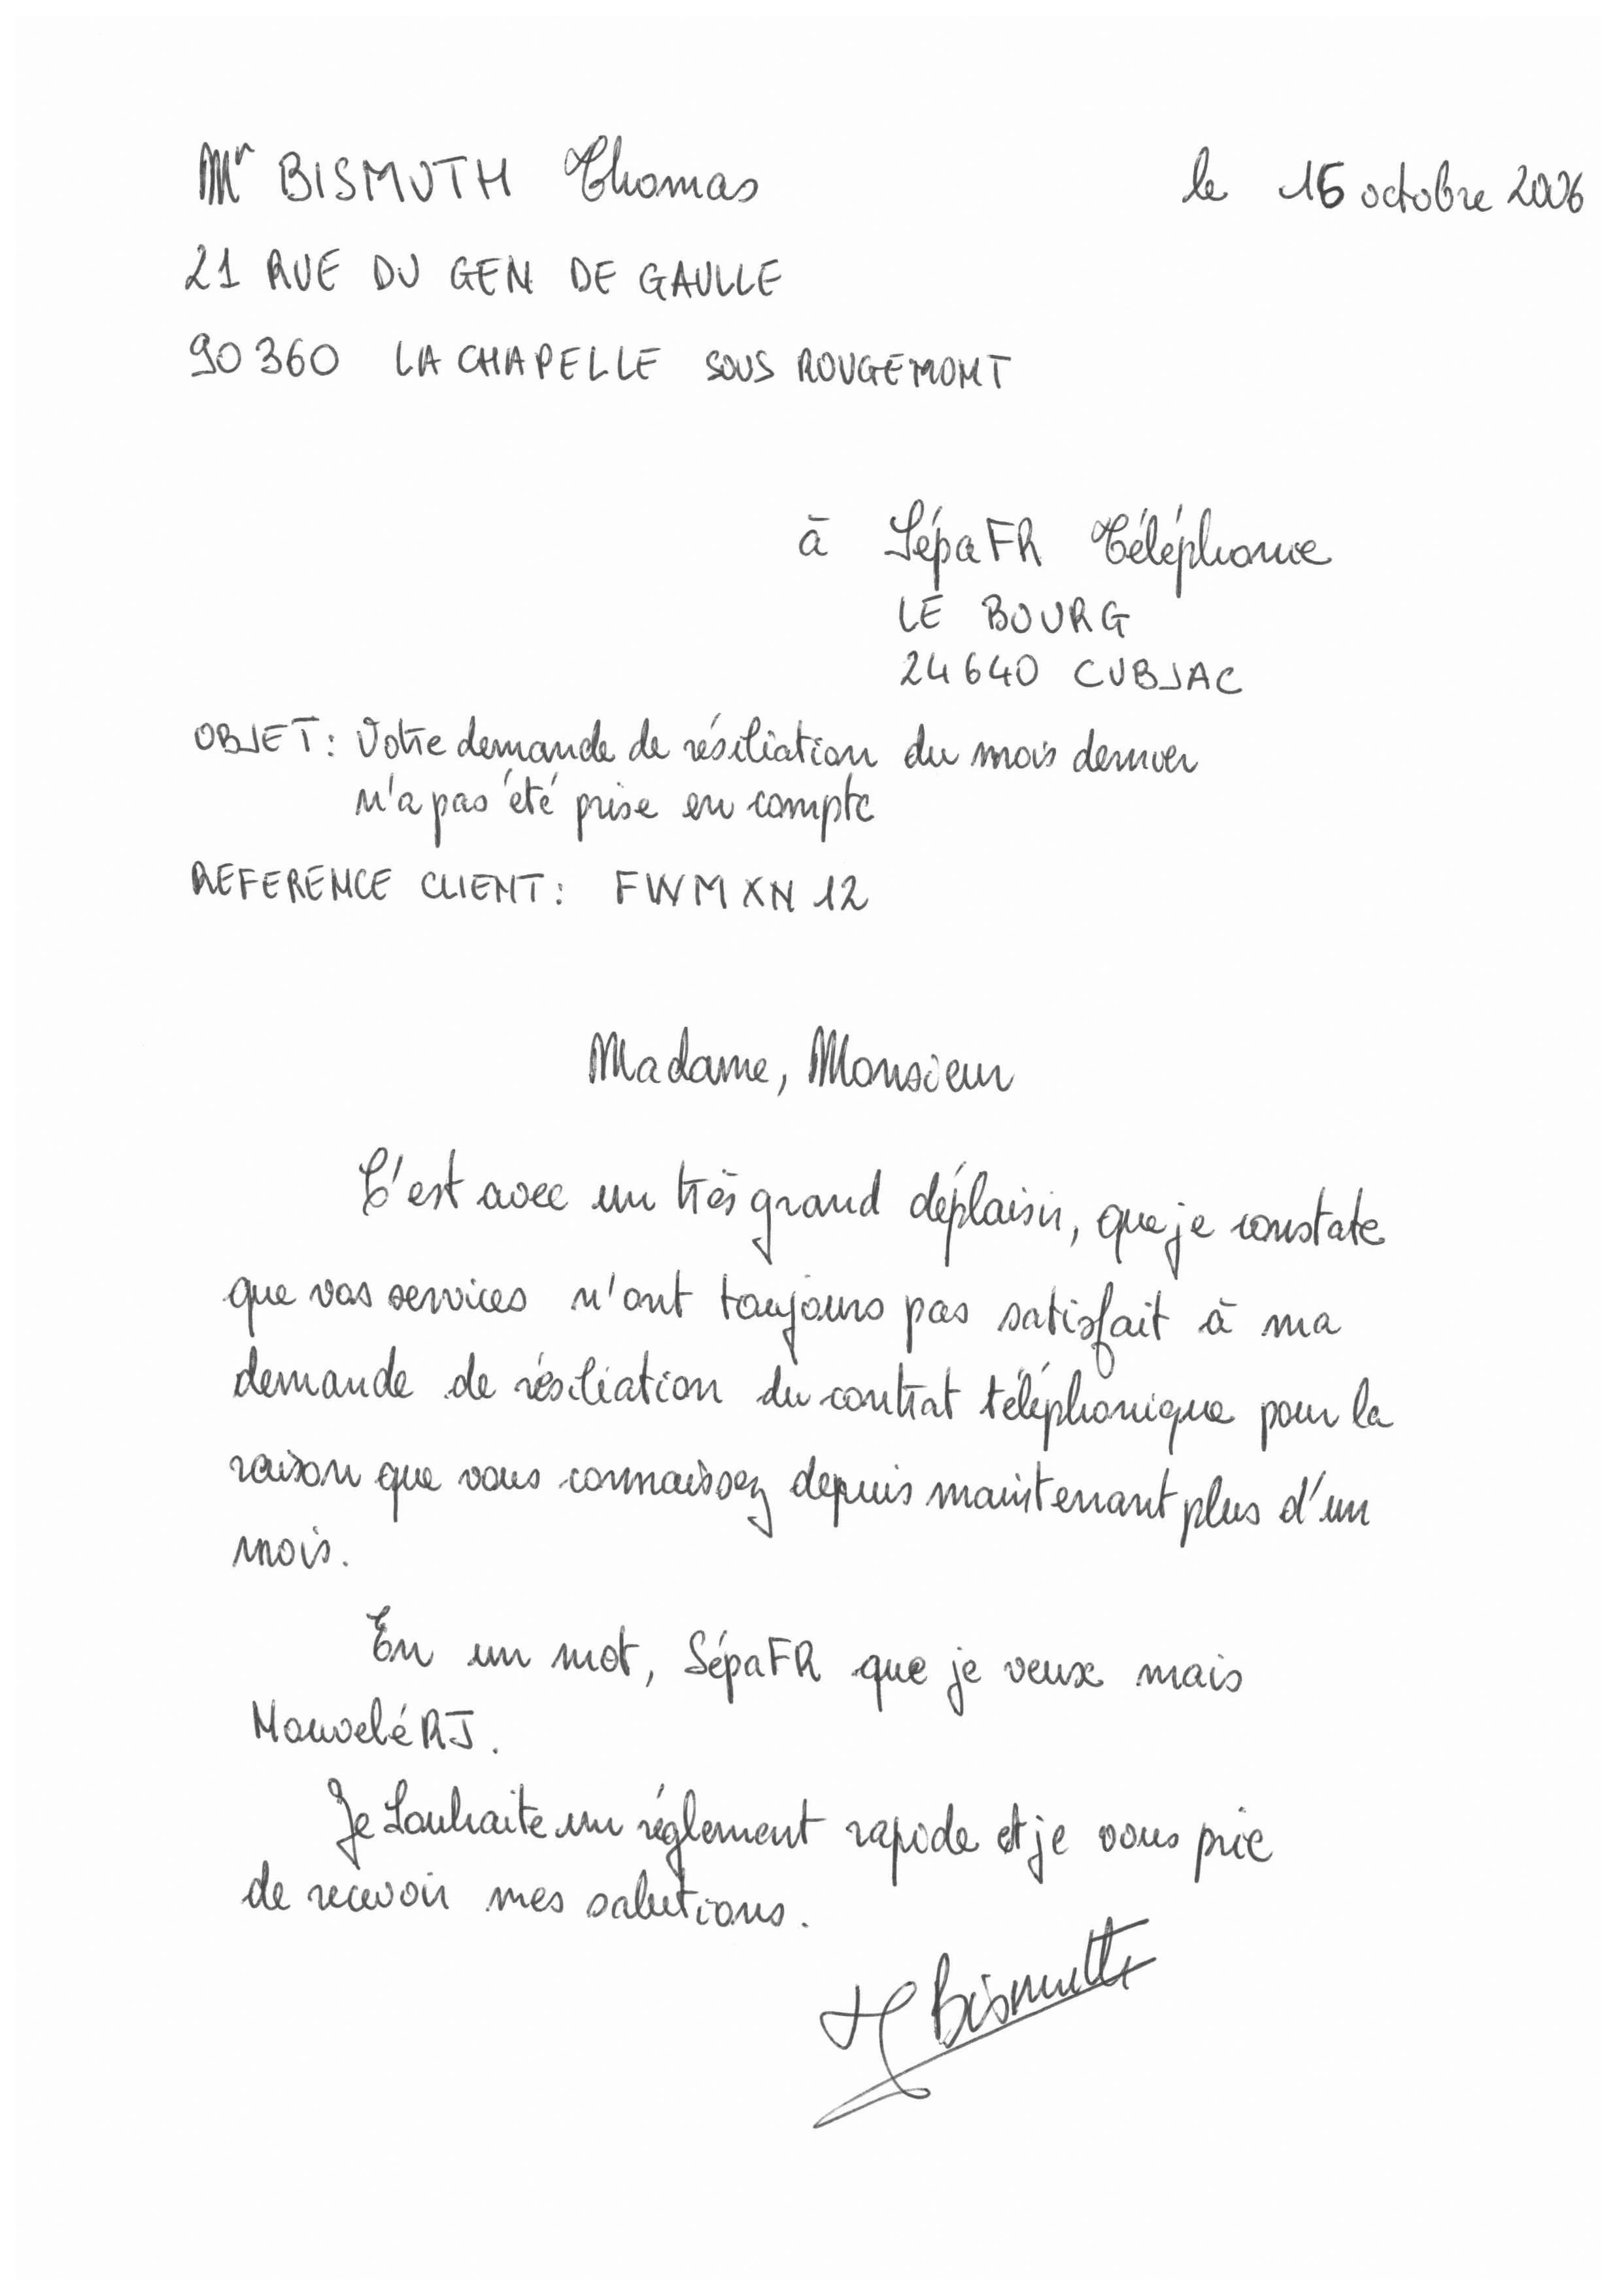 Mr BISMUTH Thomas
le 16 octobre 2006
21 RUE DU GEN DE GAULLE
90360 LA CHAPELLE SOUS ROUGEMONT
à SépaFR Téléphonie
LE BOURG
24640 CUBJAC
OBJET : Votre demande de résiliation du mois dernier
n'a pas été prise en compte
REFERENCE CLIENT : FWMXN12
Madame, Monsieur
C'est avec un très grand déplaisir, que je constate
que vos services n'ont toujours pas satisfait à ma
demande de résiliation du contrat téléphonique pour la
raison que vous connaissez depuis maintenant plus d'un
mois.
En un mot, SépaFR que je veux mais
NouveléRJ.
Je souhaite un réglement rapide et je vous prie
de recevoir mes salutions.
Bismuth